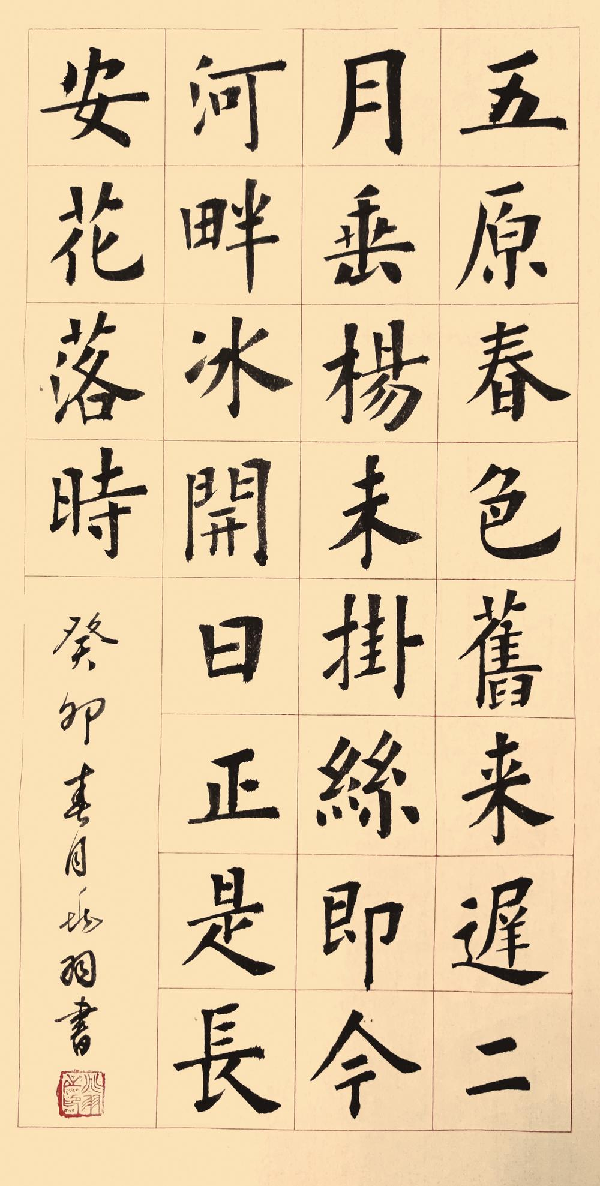 五原春色舊来遲二
月垂楊未掛絲即今
河畔冰開日正是長
安花落時
癸卯春月 羽書